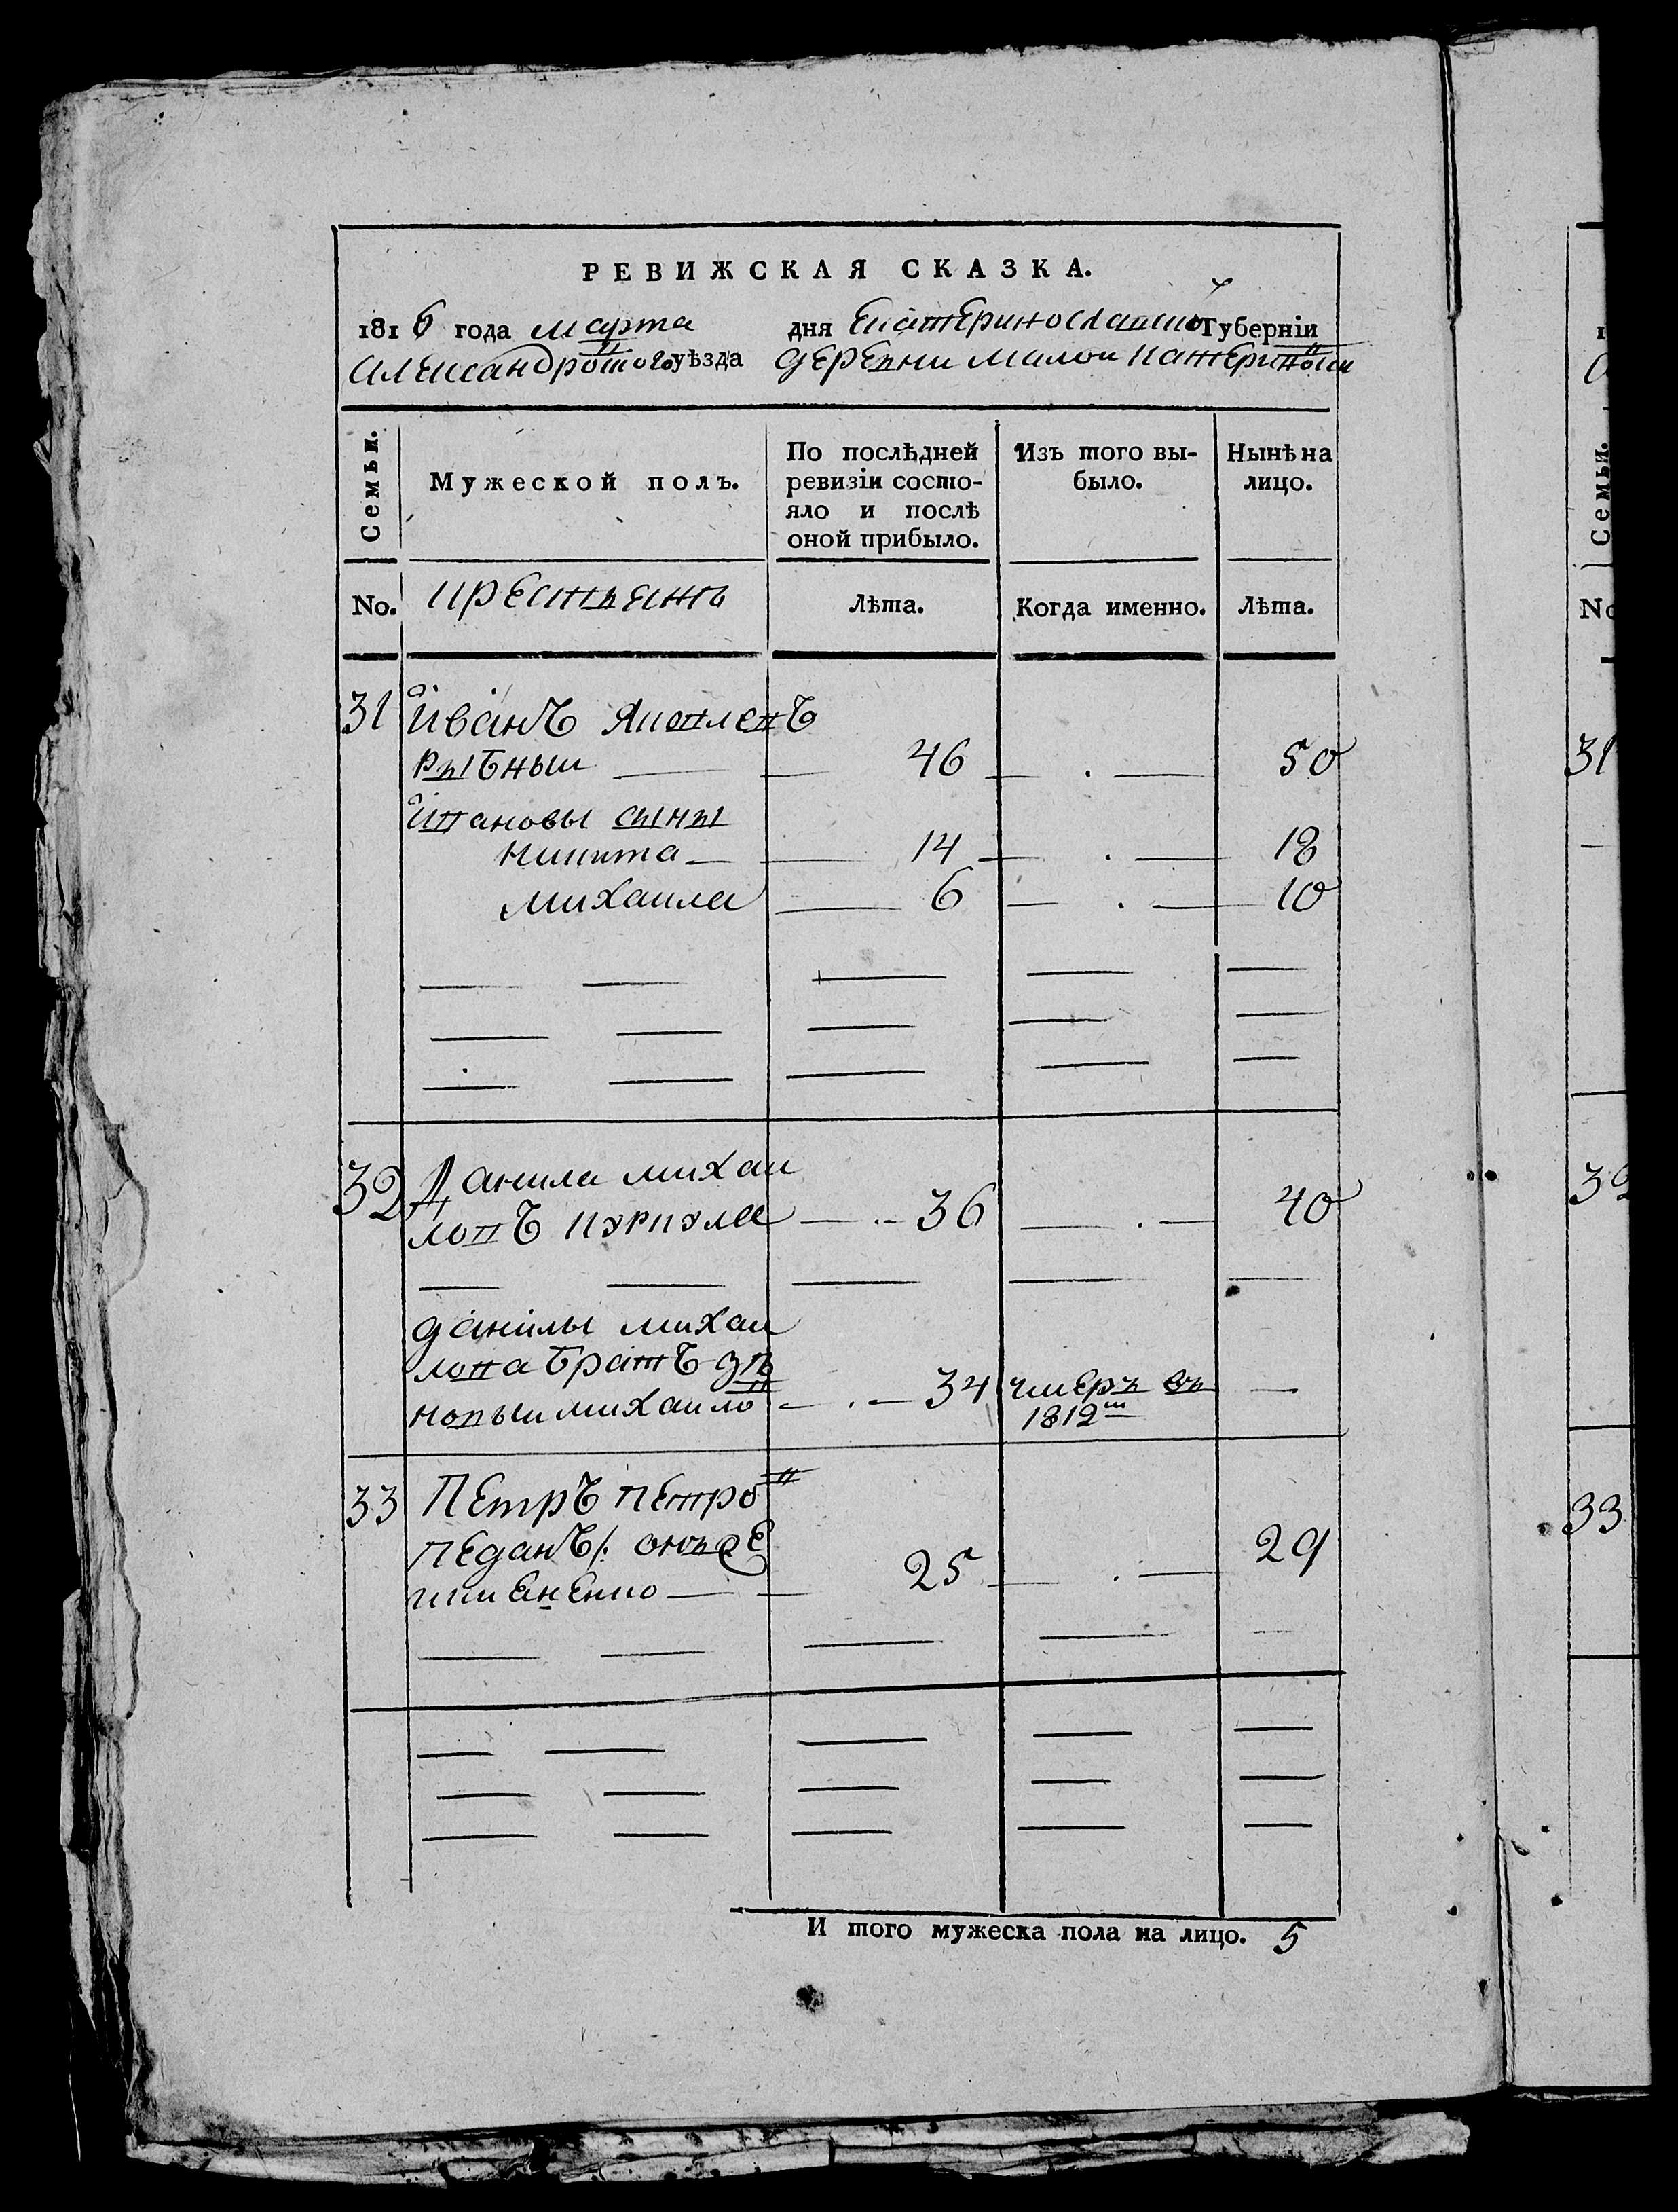 РЕВИЖСКАЯ СКАЗКА.
1816 года марта дня Екатеринославской Губерніи
Александровского уѣзда деревни малой катериновки
Семьи.
Мужеской полъ.
По послѣдней ревизіи состо-
яло и послѣ
оной прибыло.
Изъ того вы-
было.
Нынѣ на
лицо.
No. крестьянъ
Лѣта. Когда именно. Лѣта.
31 Иванъ Яковлевъ
рыбный 46 50
Ивановы сыны
Никита 14 18
михаила 6 10
32 Данила михаи
ловъ куркула 36 40
данилы михаи
лова братъ дв
михаило 34 умеръ въ —
1812м
33 Петръ петров
педанъ 29
25
И того мужеска пола на лицо. 5
Семьи.
No
31
32
33